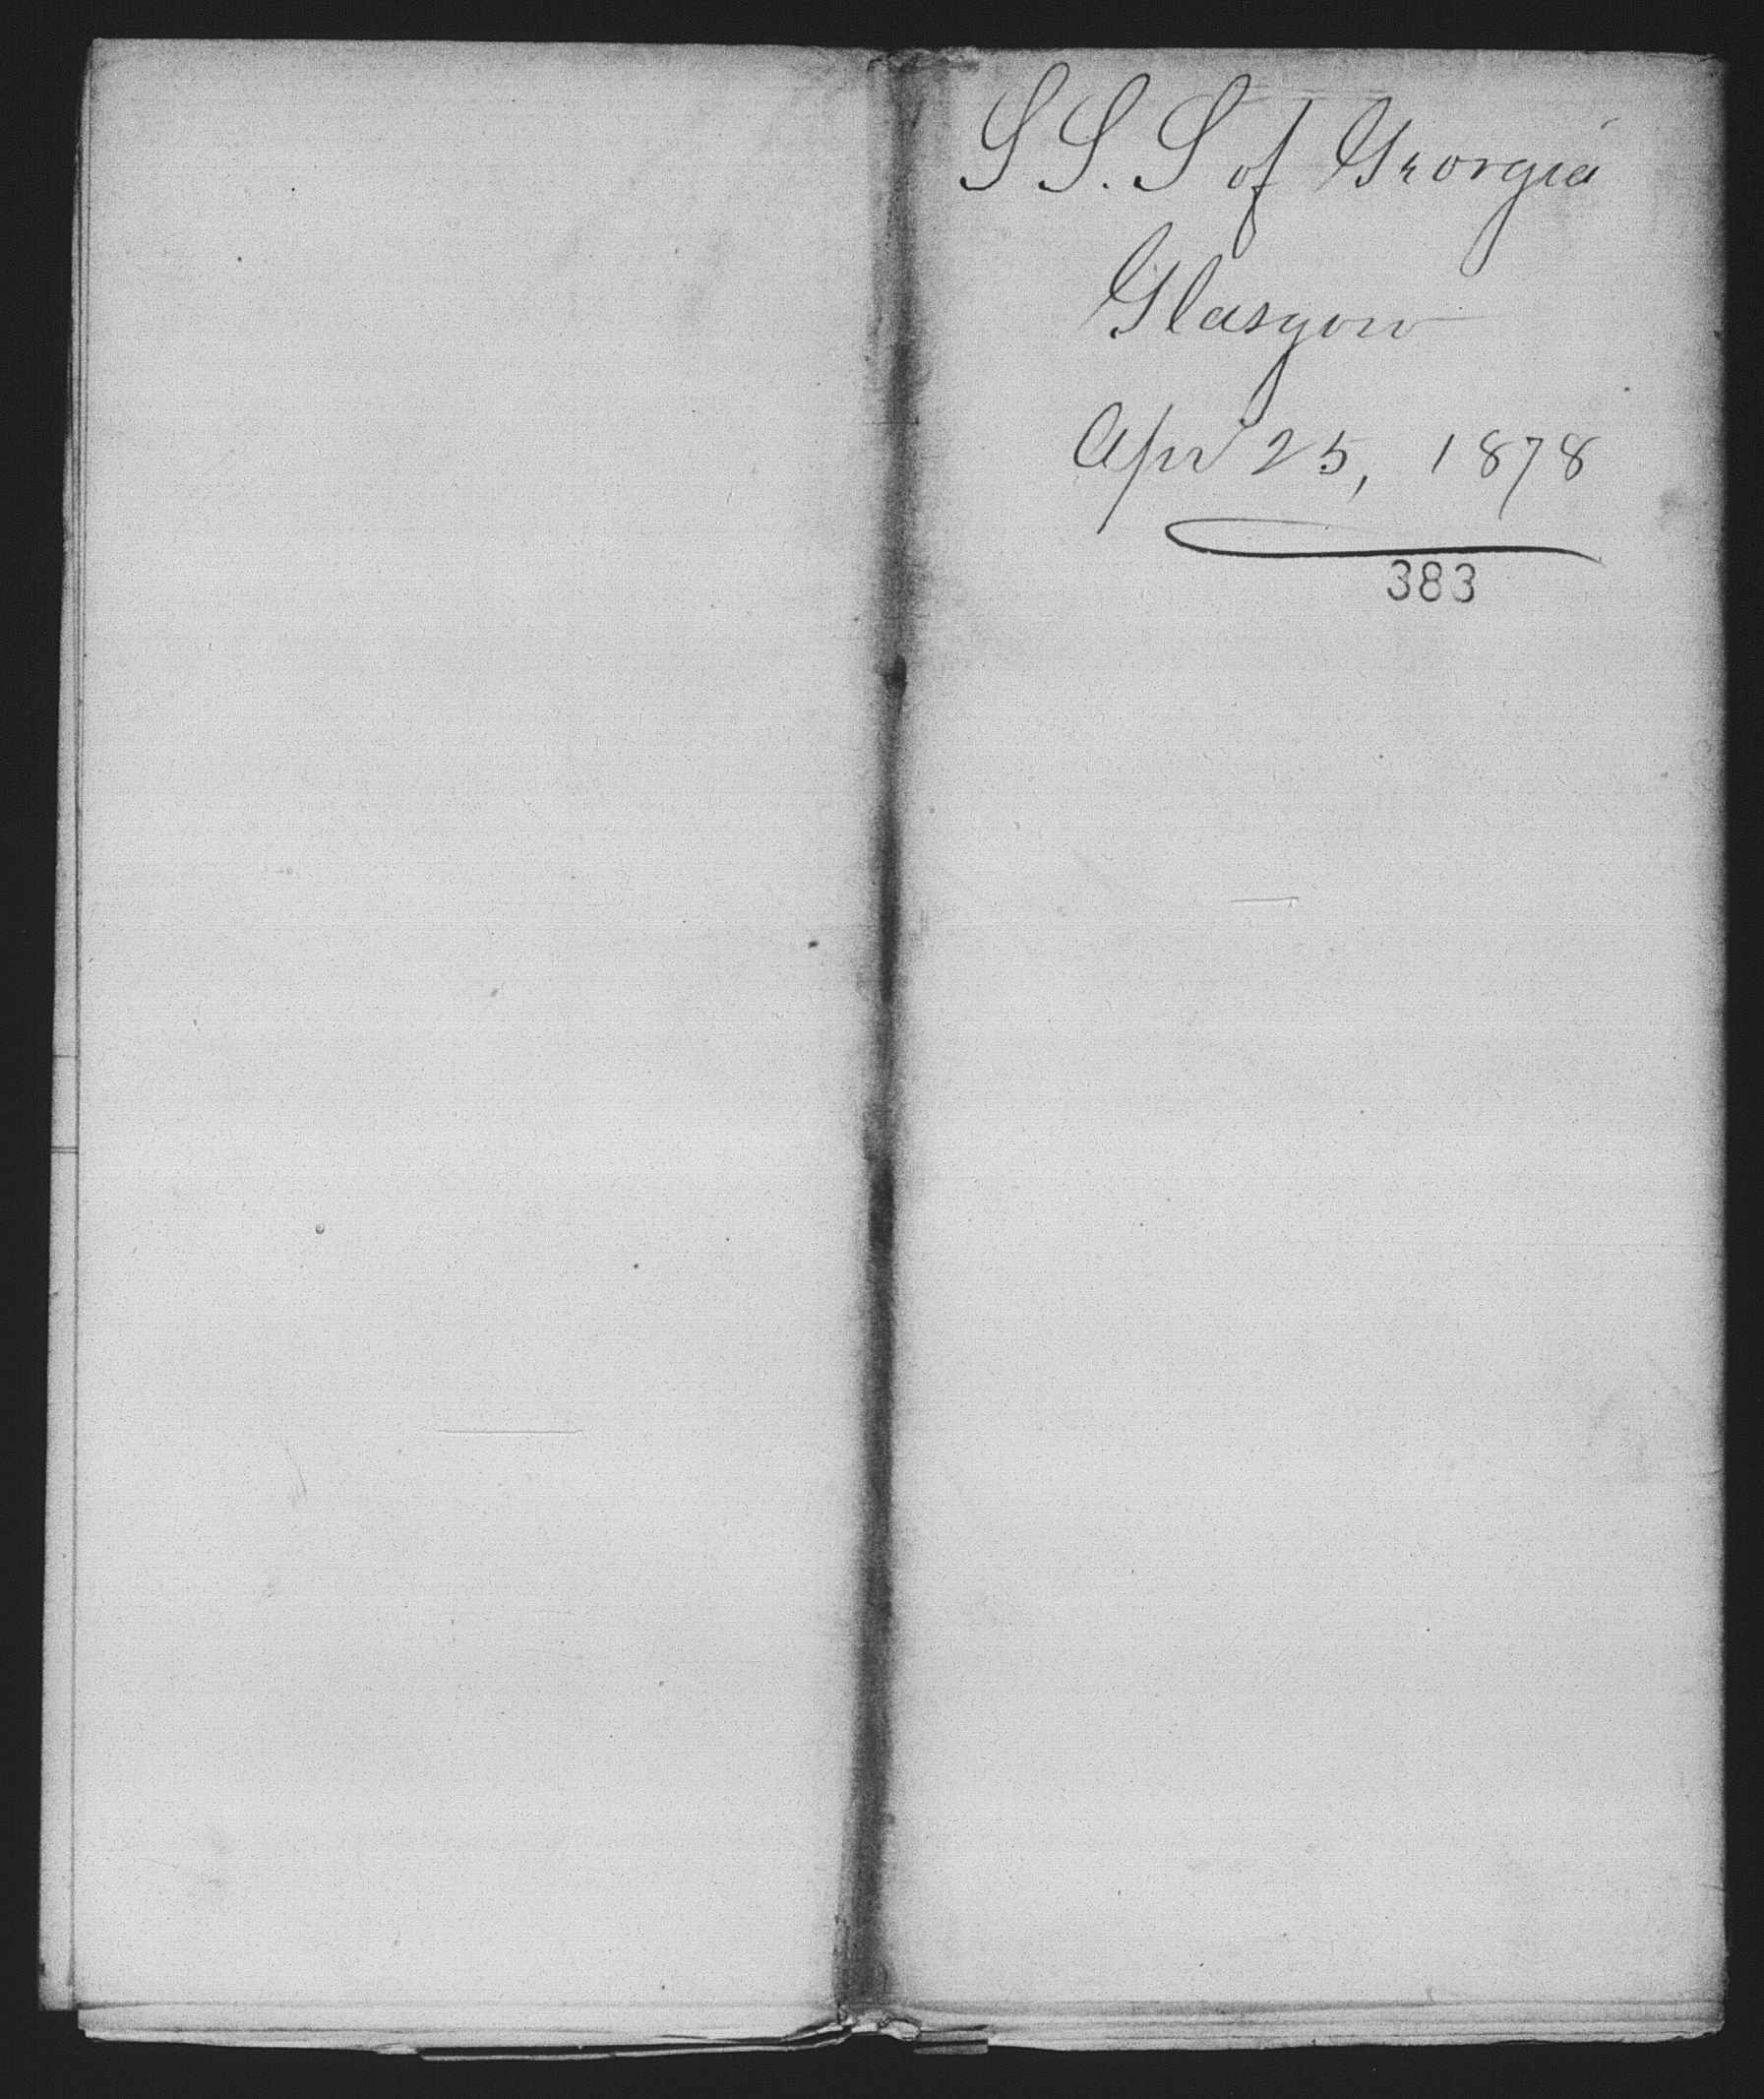 S S. S of Georgia
Glasgow
Apr 25, 1878
383